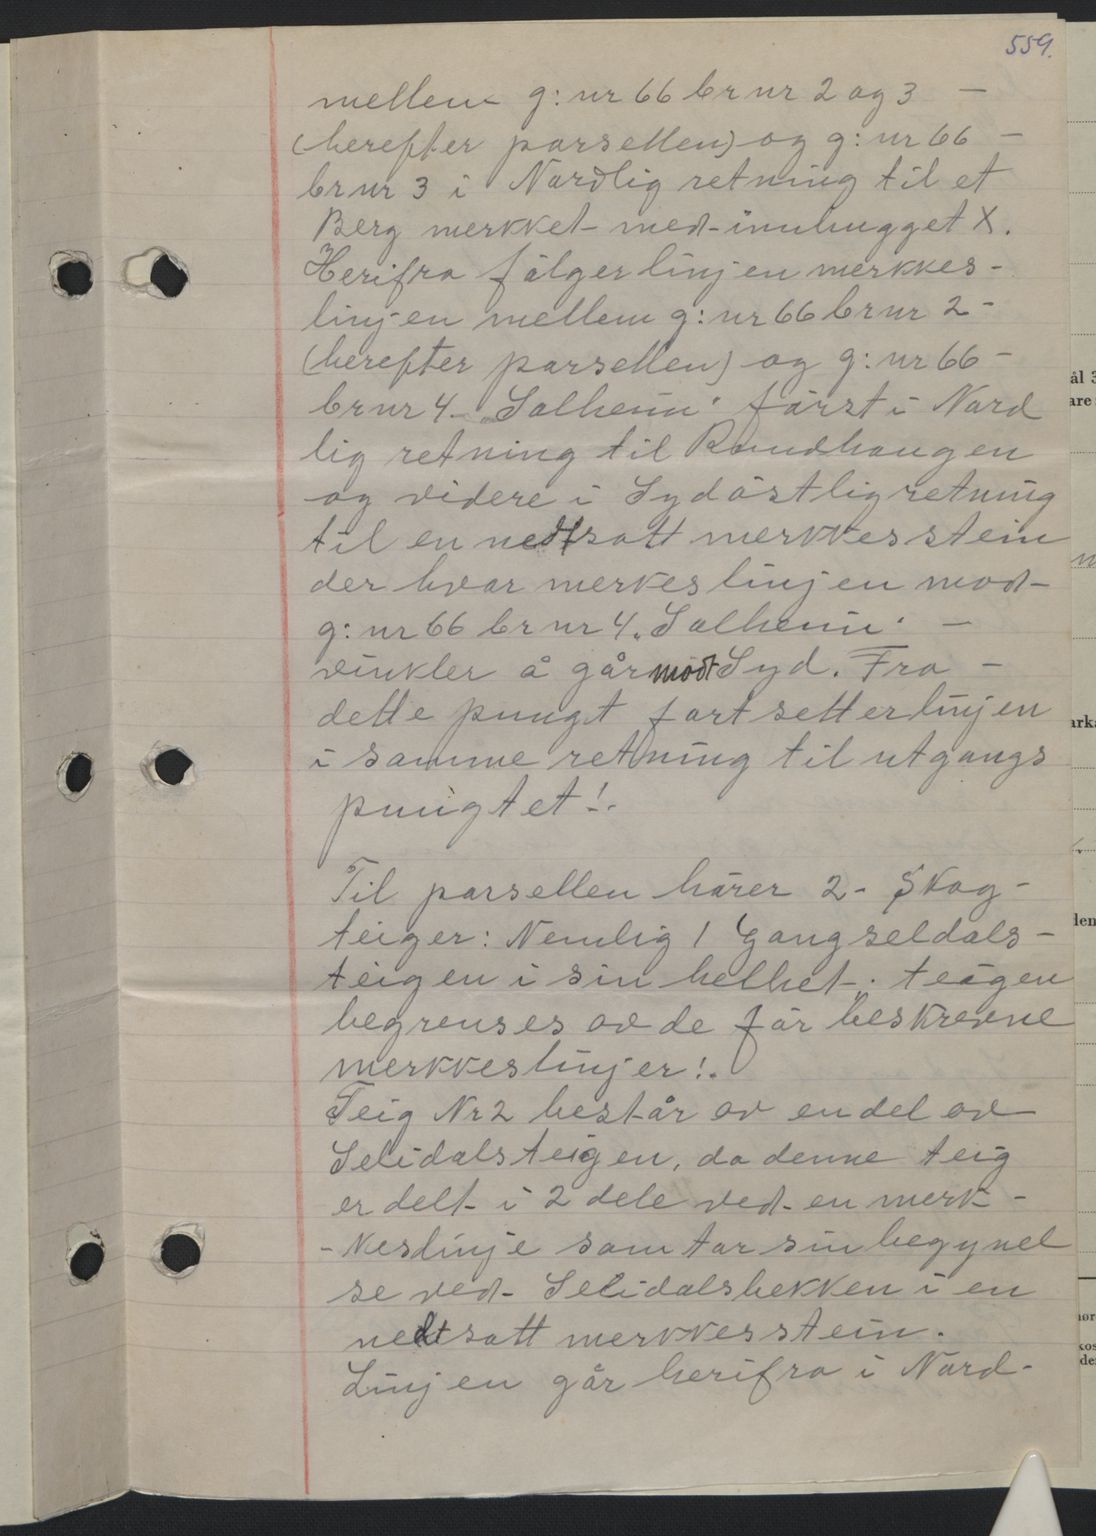 559.
mellem g: nr 66 br nr 2 og 3 —
(herefter parsellen) og g: nr 66 —
br nr 3 i Nordlig retning til et
Berg merkket med innhugget X.
Herifra følger linjen merkkes-
linjen mellem g: nr 66 br nr 2 -
(herefter parsellen) og g: nr 66 -
br nr 4 „Solheim" først i Nord
lig retning til Rundhaugen
og videre i Sydøstlig retning
til en nedsatt merkkesstein
der hvor merkeslinjen mod-
g: nr 66 br nr 4 „Solheim" —
vinkler å går modt Syd. Fra -
dette pungt fortsetter linjen
i samme retning til utgangs
pungtet!.
Til parsellen hører 2 - Skog-
teiger: Nemlig 1 Gangseldals-
teigen i sin helhet. teigen
begrenses av de før beskrevne
merkkeslinjer!.
Teig Nr 2 består av en del av
Selidalsteigen, da denne teig
er delt i 2 dele ved en merk -
- keslinje som tar sin begynel
se ved - Selidalsbekken i en
nedsatt merkkesstein.
Linjen går herifra i Nord-
ål 3
are
ark
den
nør
kos
de